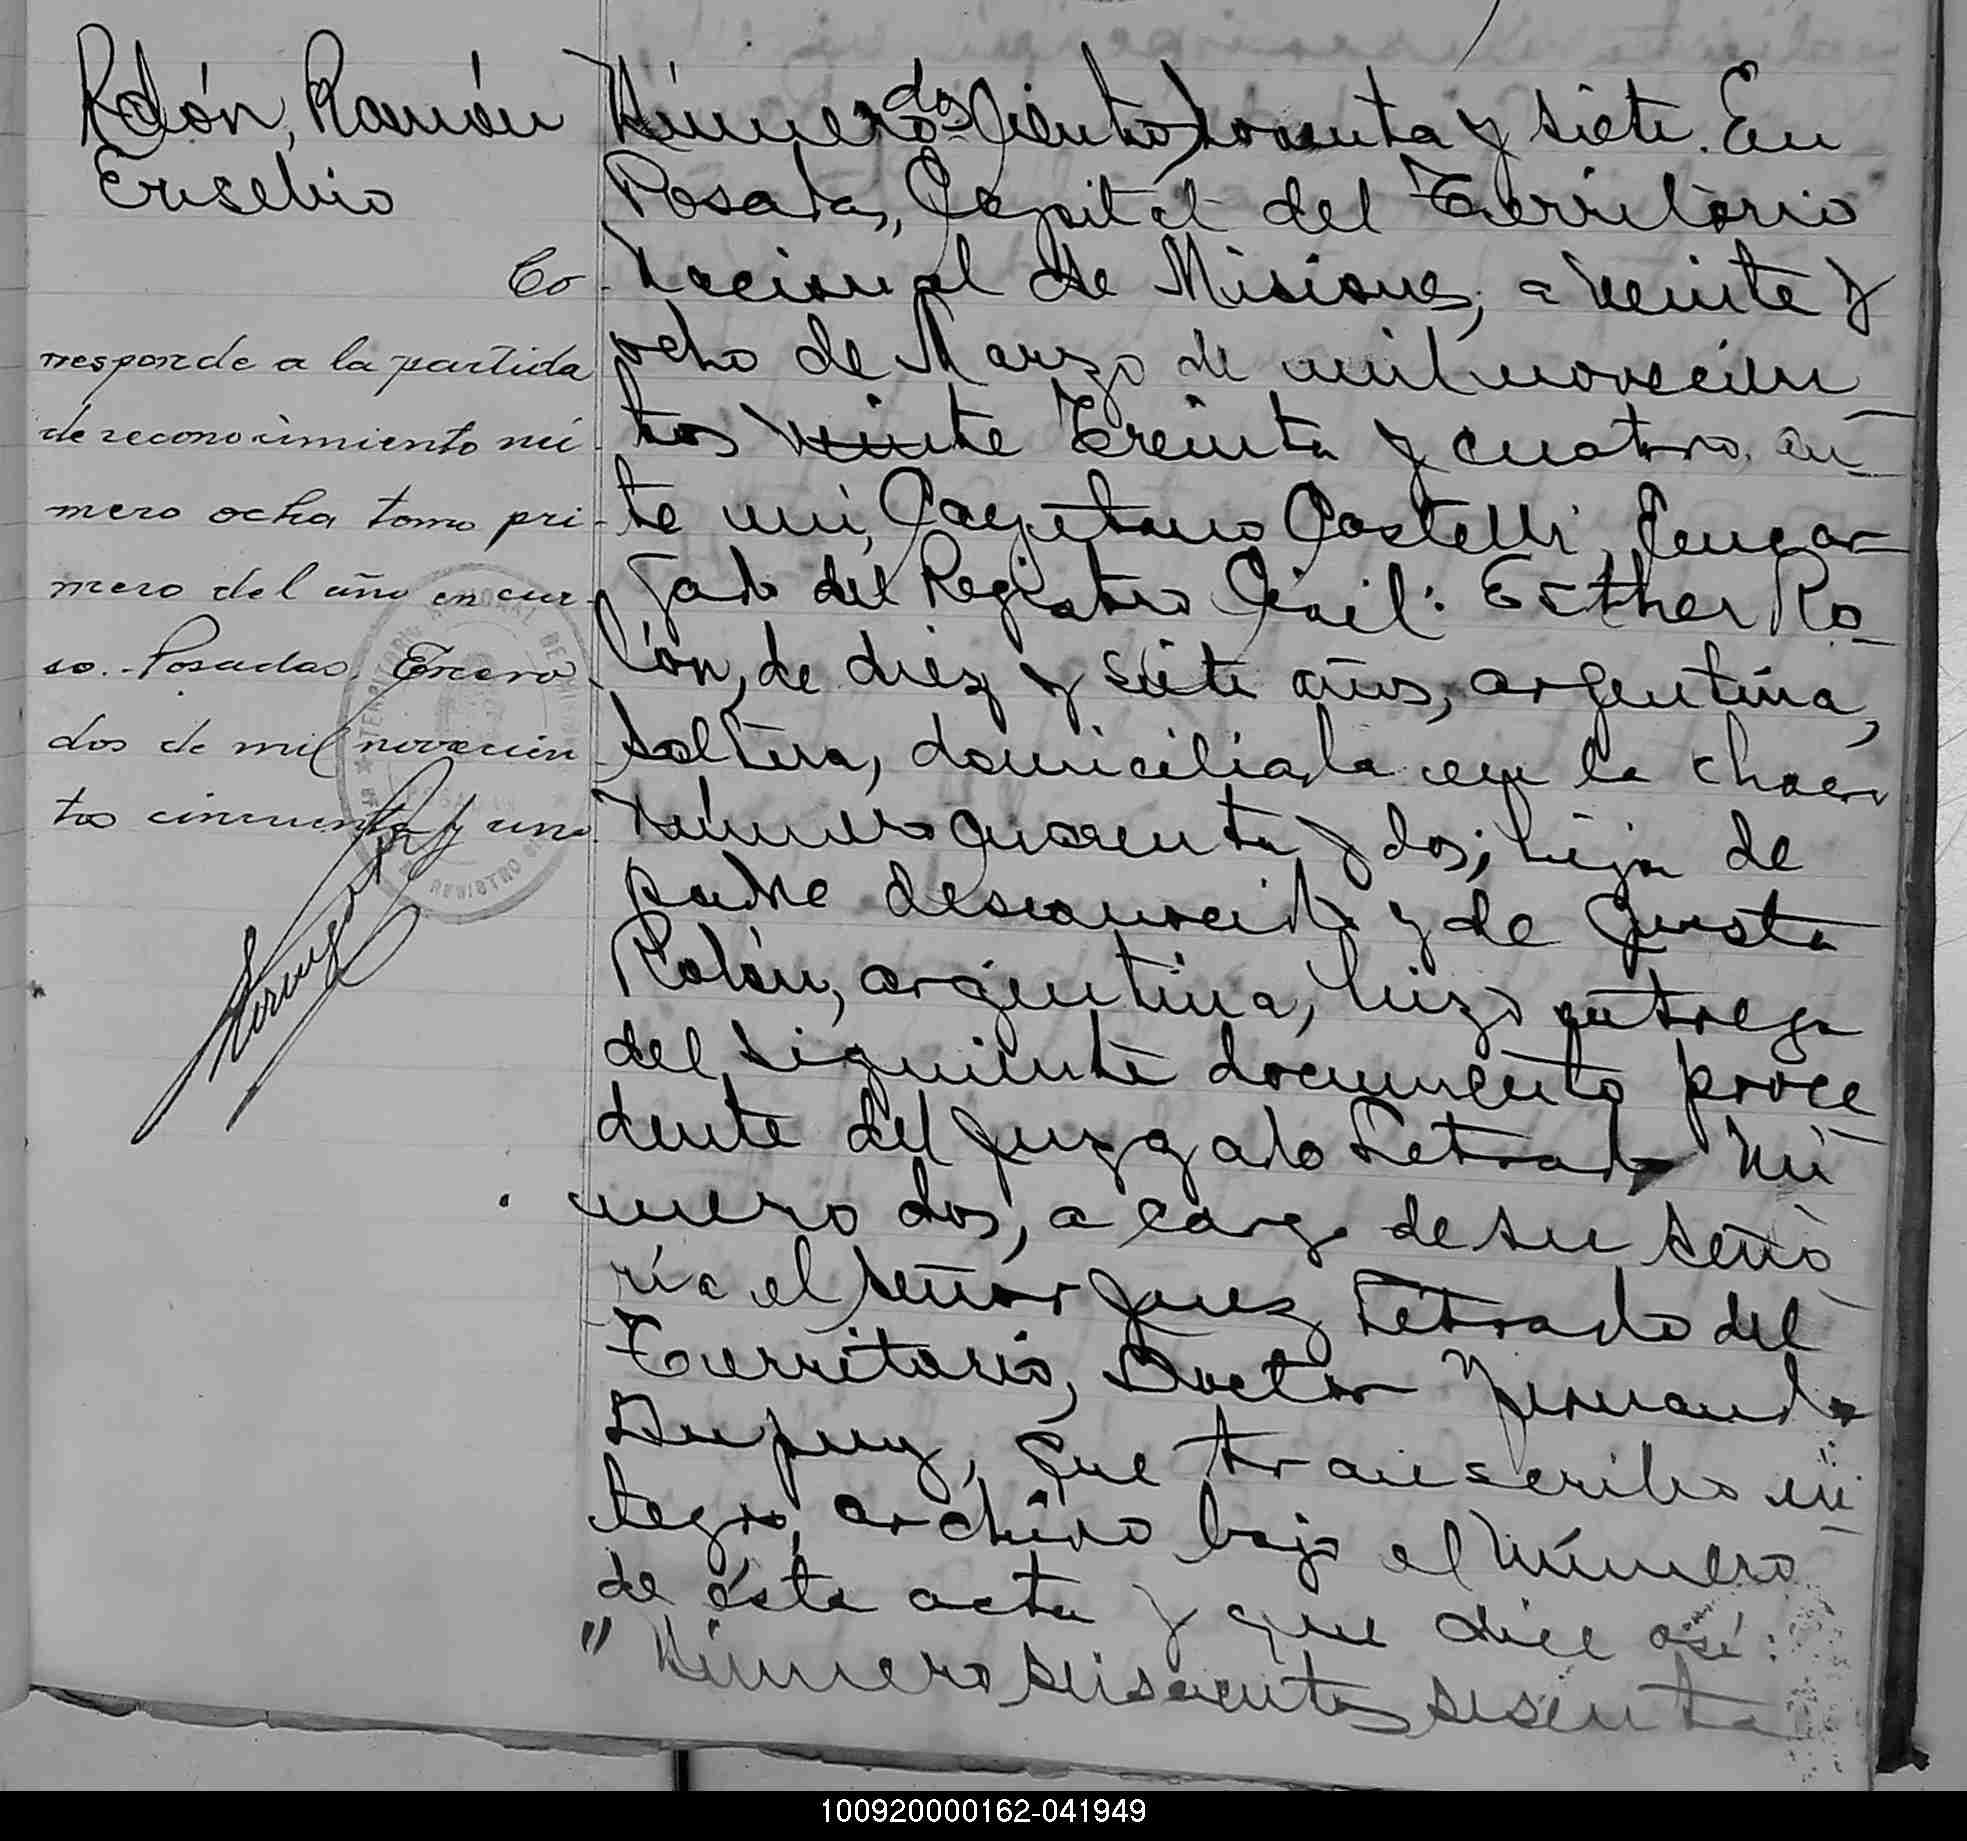 Rolón, Ramón
Eusebio
Co-
rresponde a la partida
de reconocimiento nú-
mero ocho tomo pri-
mero del año en cur-
so. Posadas, Enero
dos de mil novecien-
tos cincuenta y uno
Número doscientos y siete. En
Posadas, Capital del Territorio
Nacional de Misiones, a veinte y
ocho de Marzo de mil novecien
tos veinte treinta y cuatro, an-
te mí, Cayetano Castelli, Encar-
gado del Registro Civil: Esther Ro-
lón, de diez y siete años, argentina,
soltera, domiciliada en la chacra
número cuarenta y dos; hija de
padre desconocido y de Justa
Rolón, argentina, hizo entrega
del siguiente documento proce
dente del Juzgado Letrado Nú
mero dos, a cargo de su Seño
ría el Señor Juez Letrado del
Territorio, Doctor Fernando
Dupuy, que transcribo ín-
tegro, archivo bajo el número
de ésta acta y que dice así:
" Número seiscientos sesenta
TERRITORIO NACIONAL DE MISIONES
REGISTRO
100920000162-041949